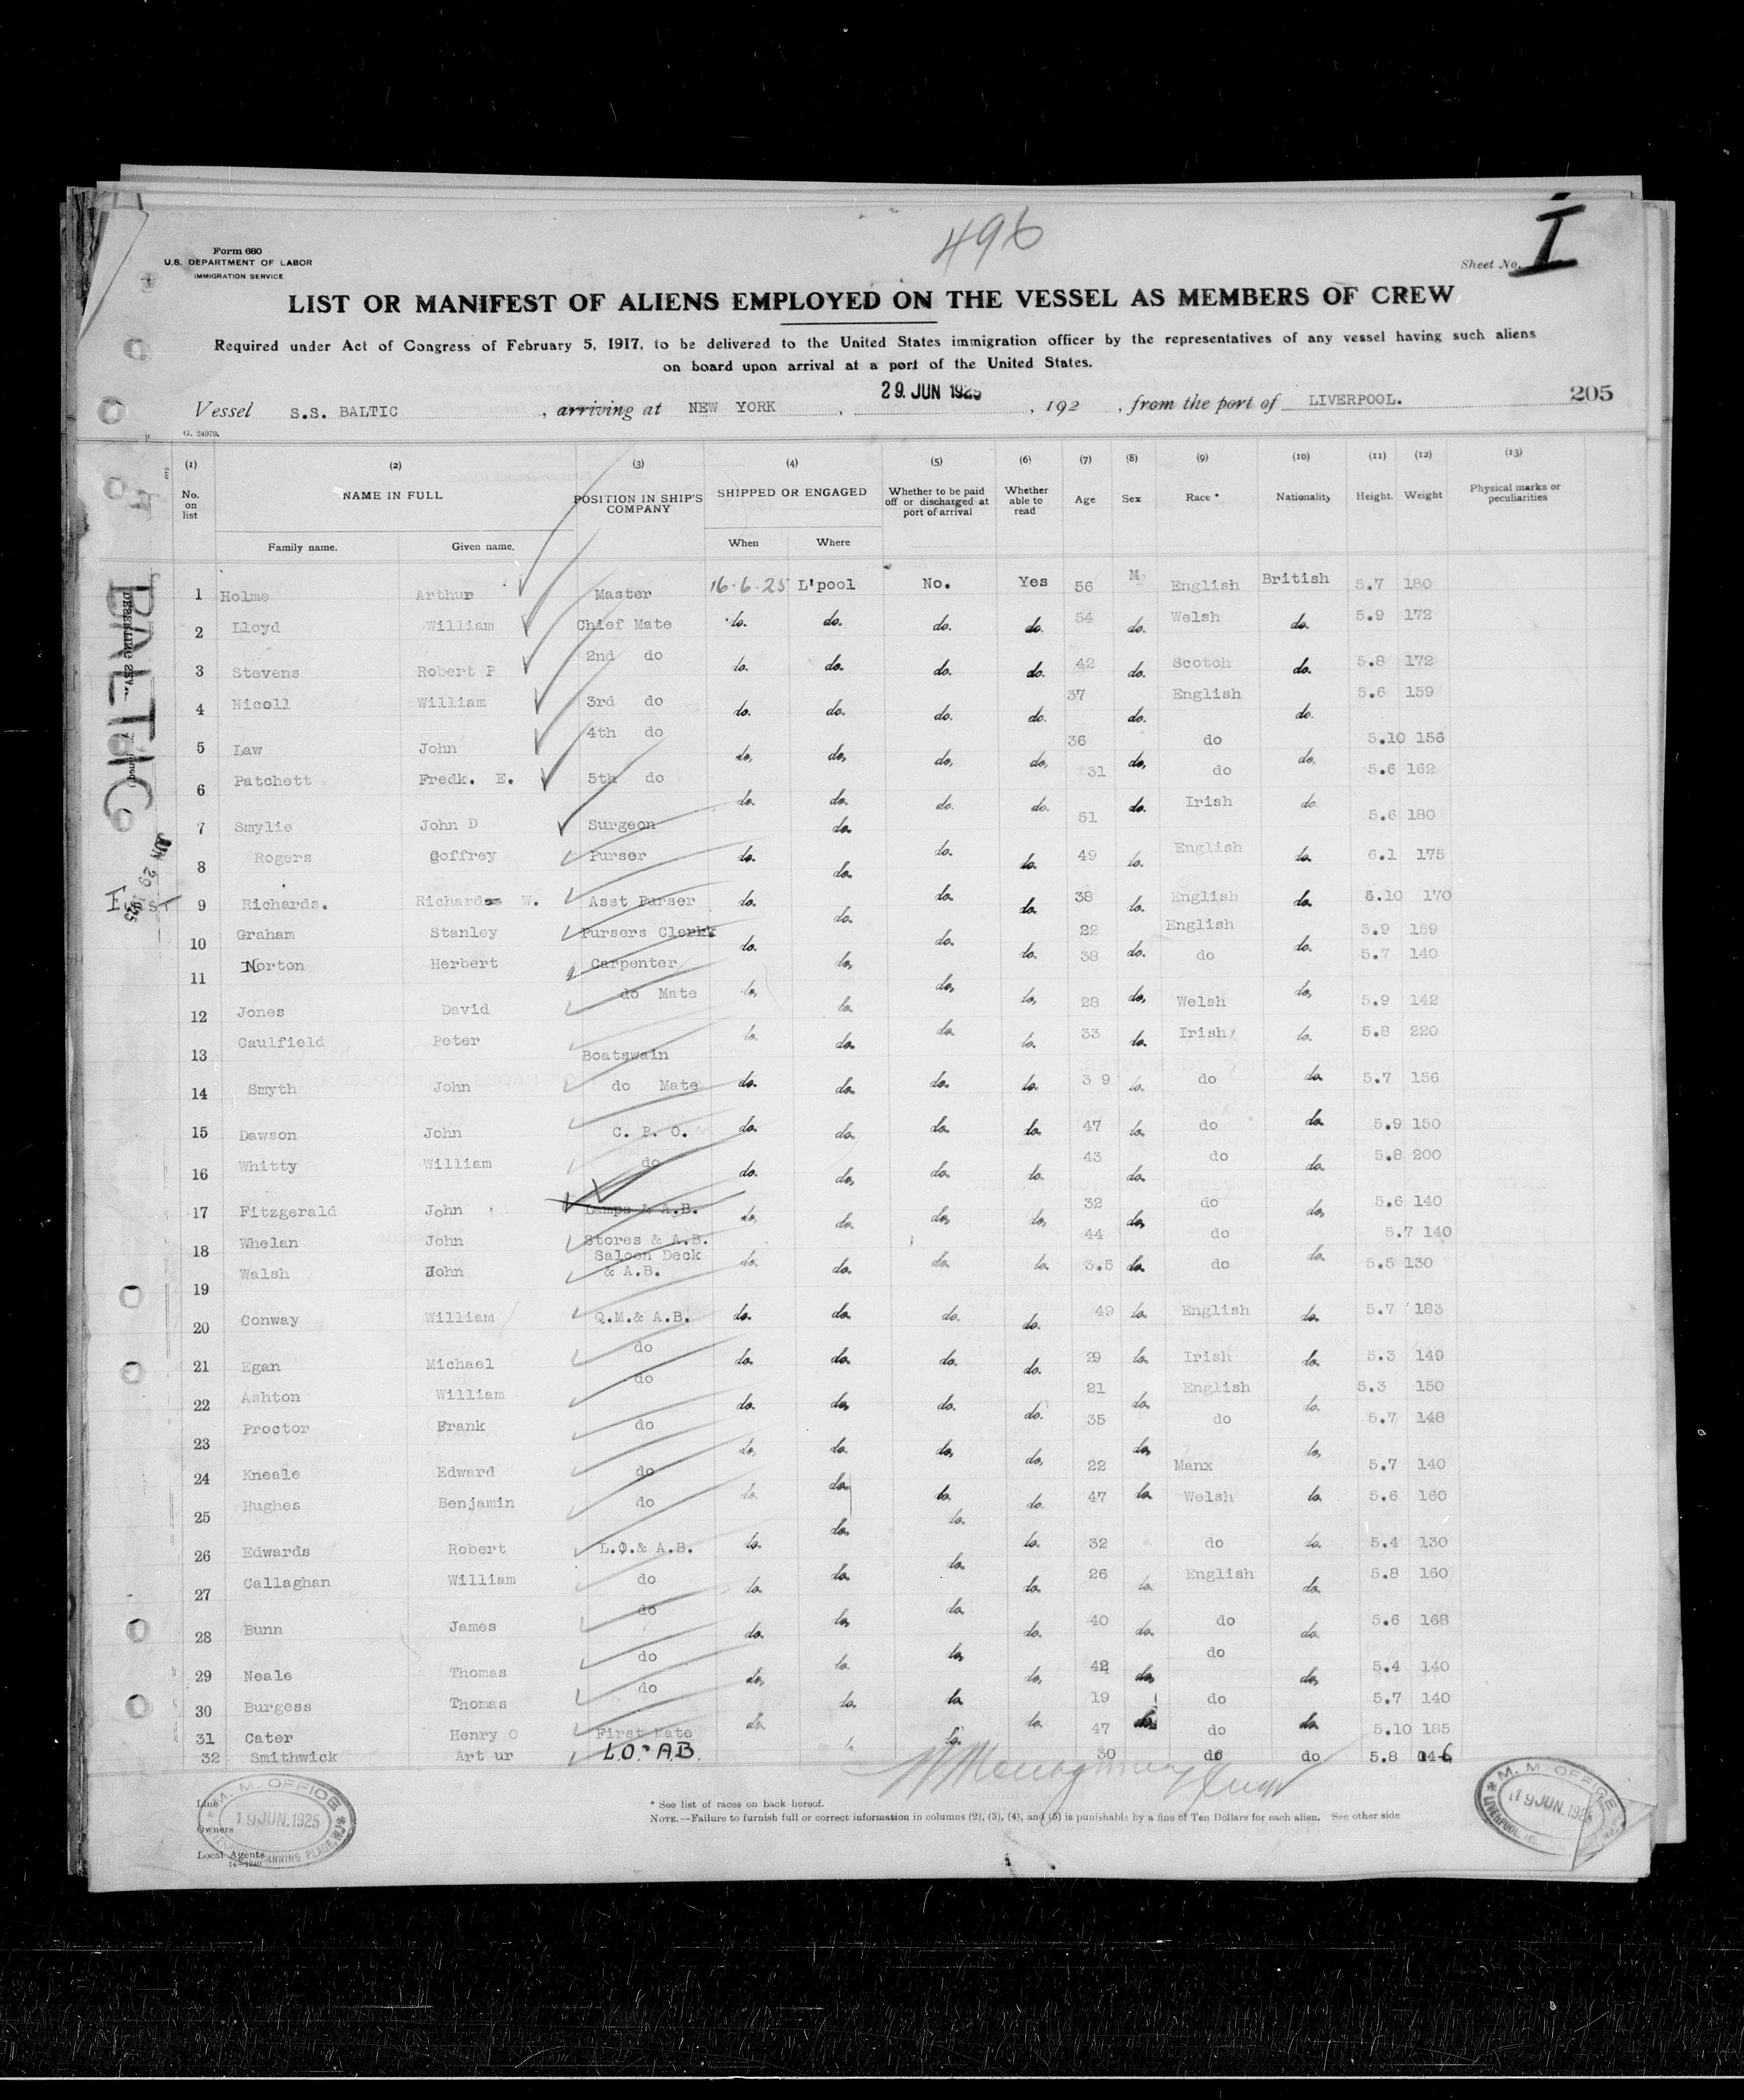 496
Form 680
U.S. DEPARTMENT OF LABOR
IMMIGRATION SERVICE
Sheet No. I
LIST OR MANIFEST OF ALIENS EMPLOYED ON THE VESSEL AS MEMBERS OF CREW
Required under Act of Congress of February 5, 1917, to be delivered to the United States immigration officer by the representatives of any vessel having such aliens
on board upon arrival at a port of the United States.
Vessel S.S. BALTIC, arriving at NEW YORK, 29. JUN 1925, 192 , from the port of LIVERPOOL. 205
G. 24979.
(1) (2) (3) (4) (5) (6) (7) (8) (9) (10) (11) (12) (13)
No. on list NAME IN FULL POSITION IN SHIP'S COMPANY SHIPPED OR ENGAGED Whether to be paid off or discharged at port of arrival Whether able to read Age Sex Race * Nationality Height. Weight Physical marks or peculiarities
Family name. Given name. When Where
1 Holme Arthur Master 16.6.25 L'pool No. Yes 56 M. English British 5.7 180
2 Lloyd William Chief Mate do. do. do. do. 54 do. Welsh do. 5.9 172
3 Stevens Robert P 2nd do do. do. do. do. 42 do. Scotch do. 5.8 172
4 Nicoll William 3rd do do. do. do. do. 37 do. English do. 5.6 159
5 Law John 4th do do. do. do. do. 36 do. do do. 5.10 156
6 Patchett Fredk. E. 5th do do. do. do. do. 31 do. do do. 5.6 162
7 Smylie John D Surgeon do. 51 Irish 5.6 180
8 Rogers Goffrey Purser do. do. do. do. 49 do. English do. 6.1 175
9 Richards. Richard W. Asst Purser do. do. do. do. 38 do. English do. 5.10 170
10 Graham Stanley Pursers Clerk do. do. do. do. 22 do. English do. 5.9 159
11 Norton Herbert Carpenter do. do. do. do. 38 do. do do. 5.7 140
12 Jones David do Mate do. do. do. do. 28 do. Welsh do. 5.9 142
13 Caulfield Peter Boatswain do. do. do. do. 33 do. Irish do. 5.8 220
14 Smyth John do Mate do. do. do. do. 39 do. do do. 5.7 156
15 Dawson John C. P. O. do. do. do. do. 47 do. do do. 5.9 150
16 Whitty William do do. do. do. do. 43 do. do do. 5.8 200
17 Fitzgerald John Lamps & A.B. do. do. do. do. 32 do. do do. 5.6 140
18 Whelan John Stores & A.B. 44 do 5.7 140
19 Walsh John Saloon Deck & A.B. do. do. do. do. 3.5 do. do do. 5.5 130
20 Conway William Q.M.& A.B. do. do. do. do. 49 do. English do. 5.7 183
21 Egan Michael do do. do. do. do. 29 do. Irish do. 5.3 149
22 Ashton William do do. do. do. do. 21 do. English do. 5.3 150
23 Proctor Frank do do. do. do. do. 35 do. do do. 5.7 148
24 Kneale Edward do do. do. do. do. 22 Manx 5.7 140
25 Hughes Benjamin do do. do. do. do. 47 do. Welsh do. 5.6 160
26 Edwards Robert L.O.& A.B. do. do. do. do. 32 do do. 5.4 130
27 Callaghan William do do. do. do. do. 26 do. English do. 5.8 160
28 Bunn James do do. do. do. do. 40 do. do do. 5.6 168
29 Neale Thomas do do. do. do. do. 42 do. do do. 5.4 140
30 Burgess Thomas do do. do. do. do. 19 do. do do. 5.7 140
31 Cater Henry O First Mate 47 do 5.10 185
32 Smithwick Art ur L.O. A.B. do. 30 do do 5.8 146
BALTIC
JUN 29 1925
* See list of races on back hereof.
NOTE.—Failure to furnish full or correct information in columns (2), (3), (4), and (5) is punishable by a fine of Ten Dollars for each alien. See other side
Line
Owners
Local Agents
M. M. OFFICE
19 JUN. 1925
CANNING PLACE
M. M. OFFICE
19 JUN. 1925
LIVERPOOL